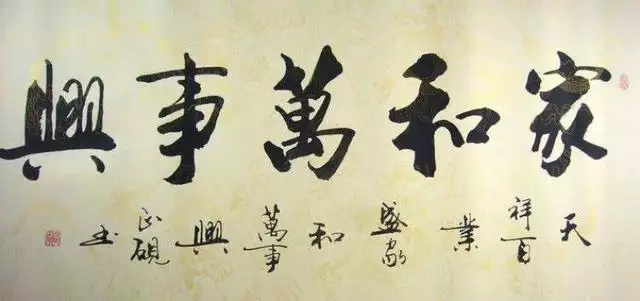 家和萬事興
天祥百業盛家和萬事興正硯书